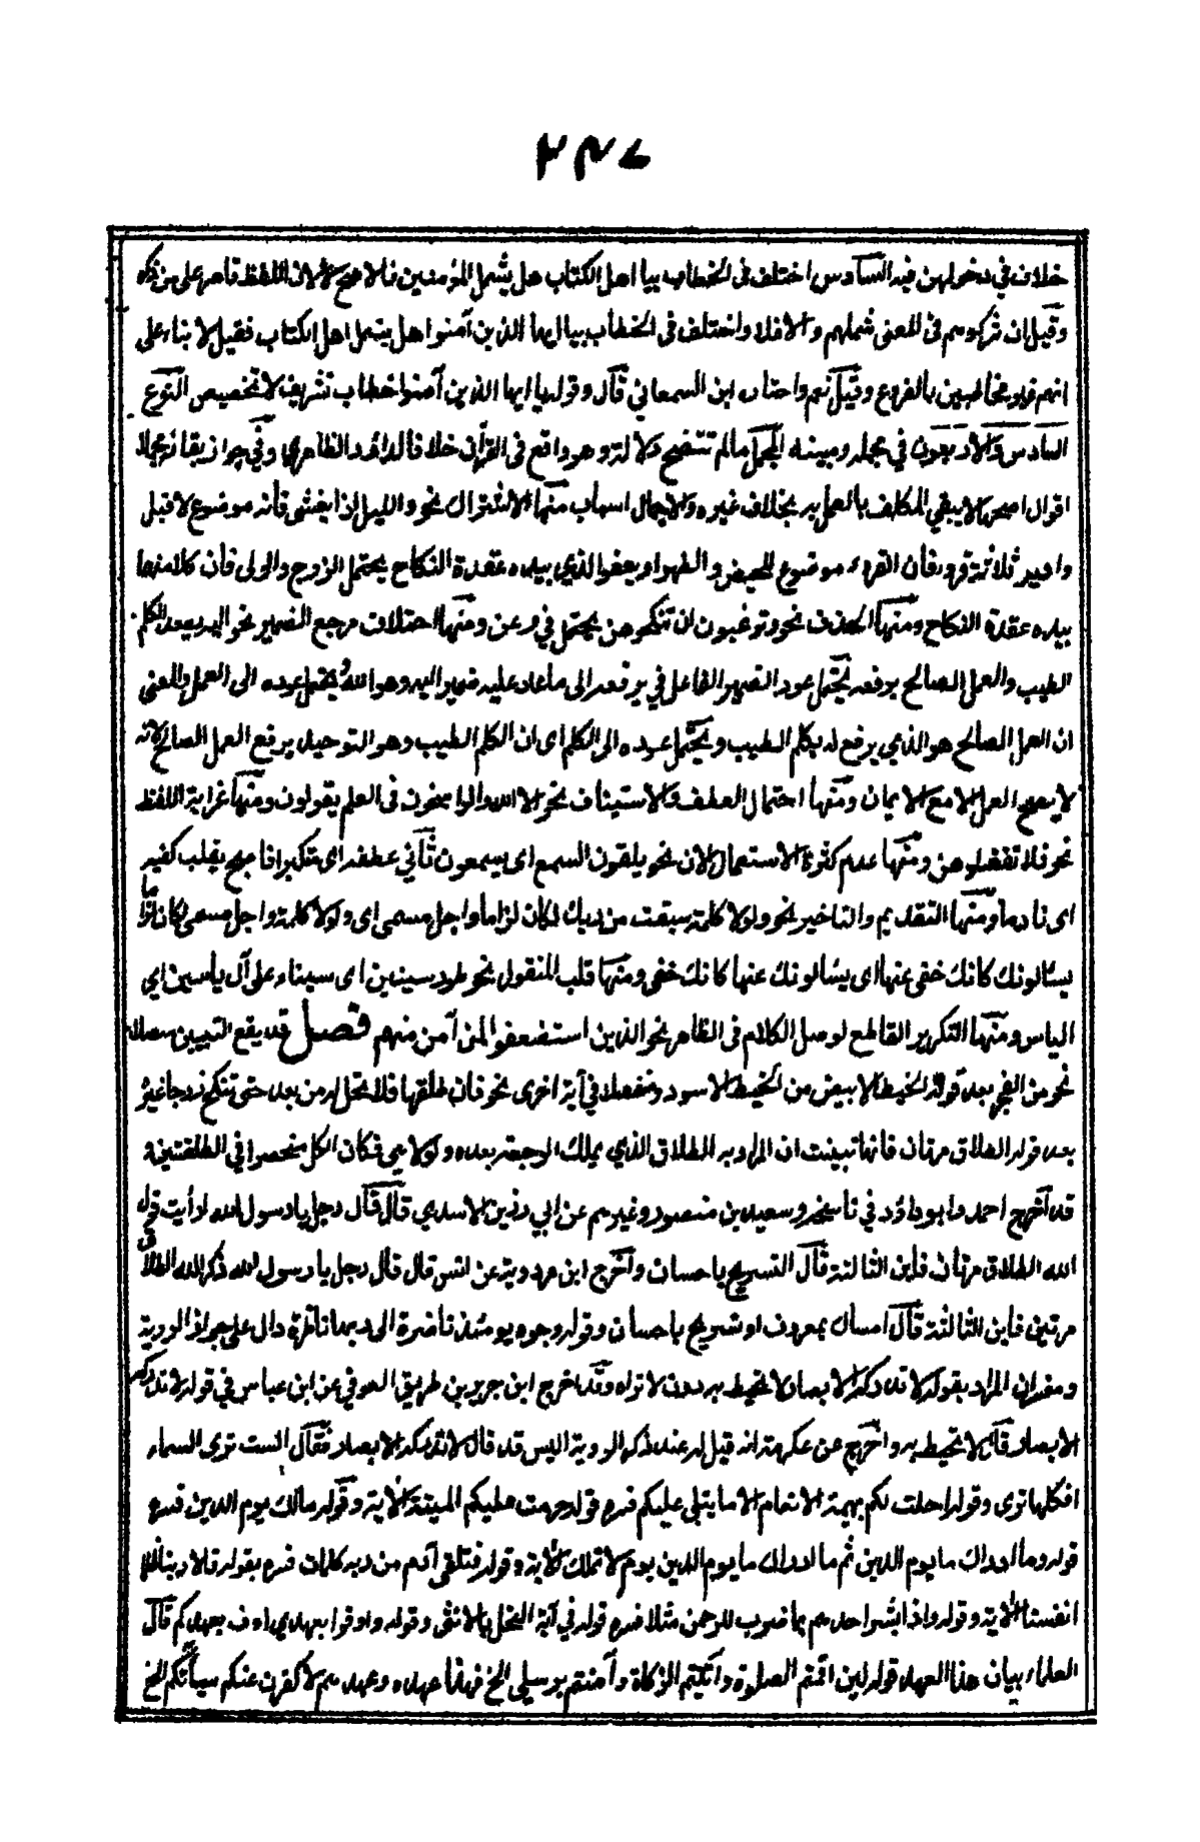 ٢٤٧
خلاف في دخولهن فيه السادس اختلف في الخطاب بيا اهل الكتاب هل يشمل المؤمنين فالاصح لا لان اللفظ قاصر على من ذكر
وقيل ان شركوهم في المعنى شملهم والا فلا واختلف في الخطاب بيا ايها الذين آمنوا هل يشمل اهل الكتاب فقيل لا بناء على
انهم غير مخاطبين بالفروع وقيل نعم واختاره ابن السمعاني قال وقوله يا ايها الذين آمنوا خطاب تشريف لا تخصيص النوع
السادس والاربعون في مجمله ومبينه المجمل ما لم تتضح دلالته وهو واقع في القرآن خلافا لداؤد الظاهري وفي جواز بقائه مجملا
اقوال اصحها لا يبقى المكلف بالعمل به بخلاف غيره وللاجمال اسباب منها الاشتراك نحو والليل اذا عسعس فانه موضوع لاقبل
وادبر ثلاثة قروء فان القرء موضوع للحيض والطهر او يعفو الذي بيده عقدة النكاح يحتمل الزوج والولي فان كلا منهما
بيده عقدة النكاح ومنها الحذف نحو وترغبون ان تنكحوهن يحتمل في وعن ومنها اختلاف مرجع الضمير نحو اليه يصعد الكلم
الطيب والعمل الصالح يرفعه يحتمل عود الضمير الفاعل في يرفعه الى ما عاد عليه ضمير اليه وهو الله ويحتمل عوده الى العمل والمعنى
ان العمل الصالح هو الذي يرفع له بكلم الطيب ويحتمل عوده الى الكلم اى ان الكلم الطيب وهو التوحيد يرفع العمل الصالح لانه
لا يصح العمل الا مع الايمان ومنها احتمال العطف والاستيناف نحو الا الله والراسخون في العلم يقولون ومنها غرابة اللفظ
نحو فلا تعضلوهن ومنها عدم كثرة الاستعمال الان نحو يلقون السمع اى يسمعون ثاني عطفه اى متكبرا فاصبح يقلب كفيه
اى نادما ومنها التقديم والتاخير نحو ولولا كلمة سبقت من ربك لكان لزاما واجل مسمى اى ولولا كلمة واجل مسمى لكان لزاما
يسئلونك كانك حفى عنها اى يسئلونك عنها كانك حفى ومنها قلب المنقول نحو طور سينين اى سيناء على آل ياسين اى
الياس ومنها التكرير القاطع لوصل الكلام في الظاهر نحو الذين استضعفوا لمن آمن منهم فصل قد يقع التبيين متصلا
نحو من الفجر بعد قوله الخيط الابيض من الخيط الاسود ومنفصلا في آية اخرى نحو فان طلقها فلا تحل له من بعد حتى تنكح زوجا غيره
بعد قوله الطلاق مرتان فانها تبينت ان المراد به الطلاق الذي يملك الرجعة بعده ولولا هي لكان الكل منحصرا في الطلقتين و
قد اخرج احمد وابو داؤد في ناسخه وسعيد بن منصور وغيرهم عن ابي رزين الاسدي قال قال رجل يا رسول الله ارأيت قول
الله الطلاق مرتان فاين الثالثة قال التسريح باحسان واخرج ابن مردوية عن انس قال قال رجل يا رسول الله ذكر الله الطلاق
مرتين فاين الثالثة قال امساك بمعروف او تسريح باحسان وقوله وجوه يومئذ ناضرة الى ربها ناظرة دال على جواز الروية
ومفسر ان المراد بقوله لا تدركه الابصار لا تحيط به دون لا تراه وقد اخرج ابن جرير من طريق العوفي عن ابن عباس في قوله لا تدركه
الابصار قال لا تحيط به واخرج عن عكرمة انه قيل له عند ذكر الروية اليس قد قال لا تدركه الابصار فقال الست ترى السماء
افكلها ترى وقوله احلت لكم بهيمة الانعام الا ما يتلى عليكم فسره قوله حرمت عليكم الميتة الآية وقوله مالك يوم الدين فسره
قوله وما ادراك ما يوم الدين ثم ما ادراك ما يوم الدين يوم لا تملك الآية وقوله فتلقى آدم من ربه كلمات فسره بقوله قالا ربنا ظلمنا
انفسنا الآية وقوله واذا بشر احدهم بما ضرب للرحمن مثلا فسره قوله في آية النحل بالانثى وقوله واوفوا بعهدي اوف بعهدكم قال
العلماء بيان هذا العهد قوله لئن اقمتم الصلوة وآتيتم الزكاة وآمنتم برسلي الخ فهذا عهده وعهدهم لاكفرن عنكم سيآتكم الخ